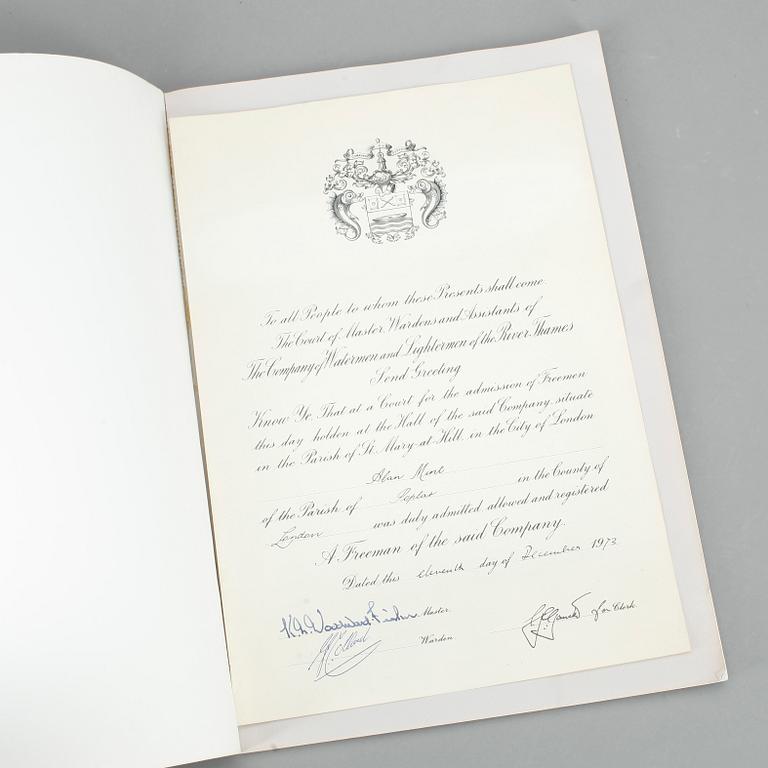 To all People to whom these Presents shall come
The Court of Master, Wardens and Assistants of
The Company of Watermen and Lightermen of the River Thames
Send Greeting
Know Ye, That at a Court for the admission of Freemen
this day holden at the Hall of the said Company, situate
in the Parish of St. Mary-at-Hill in the City of London
Alan
of the Parish of Poplar in the County of
London was duly admitted allowed and registered
A Freeman of the said Company.
Dated this eleventh day of December 1973
Master.
for Clerk.
Warden.